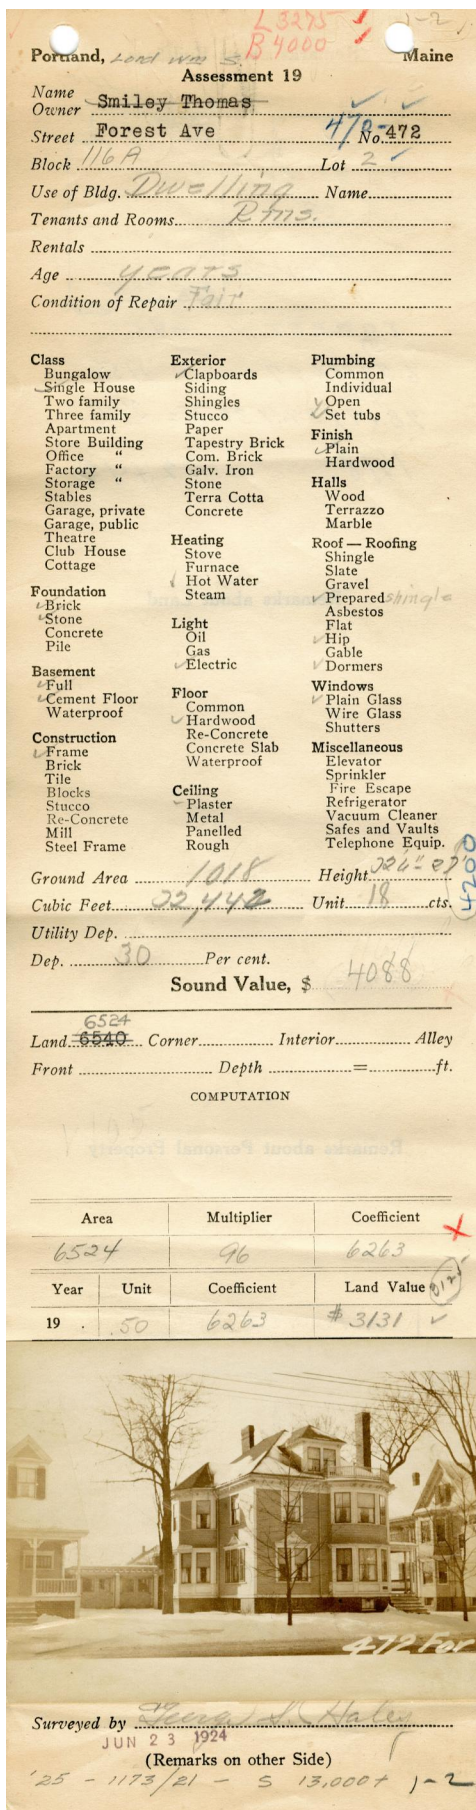 L 3275
B 4000
1-2
Portland, Lord Wm S. Maine
Assessment 19
Name
Owner Smiley Thomas
Street Forest Ave 470- No. 472
Block 116 A Lot 2
Use of Bldg. Dwelling Name
Tenants and Rooms Rms.
Rentals
Age years
Condition of Repair Fair
Class
Bungalow
Single House
Two family
Three family
Apartment
Store Building
Office "
Factory "
Storage "
Stables
Garage, private
Garage, public
Theatre
Club House
Cottage
Foundation
Brick
Stone
Concrete
Pile
Basement
Full
Cement Floor
Waterproof
Construction
Frame
Brick
Tile
Blocks
Stucco
Re-Concrete
Mill
Steel Frame
Exterior
Clapboards
Siding
Shingles
Stucco
Paper
Tapestry Brick
Com. Brick
Galv. Iron
Stone
Terra Cotta
Concrete
Heating
Stove
Furnace
Hot Water
Steam
Light
Oil
Gas
Electric
Floor
Common
Hardwood
Re-Concrete
Concrete Slab
Waterproof
Ceiling
Plaster
Metal
Panelled
Rough
Plumbing
Common
Individual
Open
Set tubs
Finish
Plain
Hardwood
Halls
Wood
Terrazzo
Marble
Roof — Roofing
Shingle
Slate
Gravel
Prepared shingle
Asbestos
Flat
Hip
Gable
Dormers
Windows
Plain Glass
Wire Glass
Shutters
Miscellaneous
Elevator
Sprinkler
Fire Escape
Refrigerator
Vacuum Cleaner
Safes and Vaults
Telephone Equip.
Ground Area 1018 Height
Cubic Feet 22,442 Unit 18 cts.
4200
Utility Dep.
Dep. 30 Per cent.
Sound Value, $ 4088
6524
Land 6540 Corner Interior Alley
Front Depth = ft.
COMPUTATION
Area Multiplier Coefficient
6524 96 6263
Year Unit Coefficient Land Value 3125
19 . .50 6263 $ 3131
472 For
Surveyed by
JUN 23 1924
(Remarks on other Side)
'25 - 1173/21 - S 13,000+ 1-2